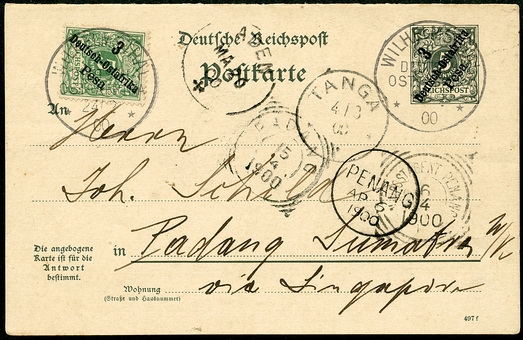 Deutsche Reichspost
Postkarte
3
Deutsch-Ostafrika
Pesa
3
Deutsch-Ostafrika
Pesa
REICHSPOST
WILHELMSTHAL
00
ADEN
TANGA
4/3
00
PADANG
15
4
1900
PENANG
AP
1900
PENANG
6
4
1900
An
Herrn
Joh.
in Padang Sumatra W/K
via Singapore
Die angebogene
Karte ist für die
Antwort
bestimmt.
Wohnung
(Straße und Hausnummer)
497 f